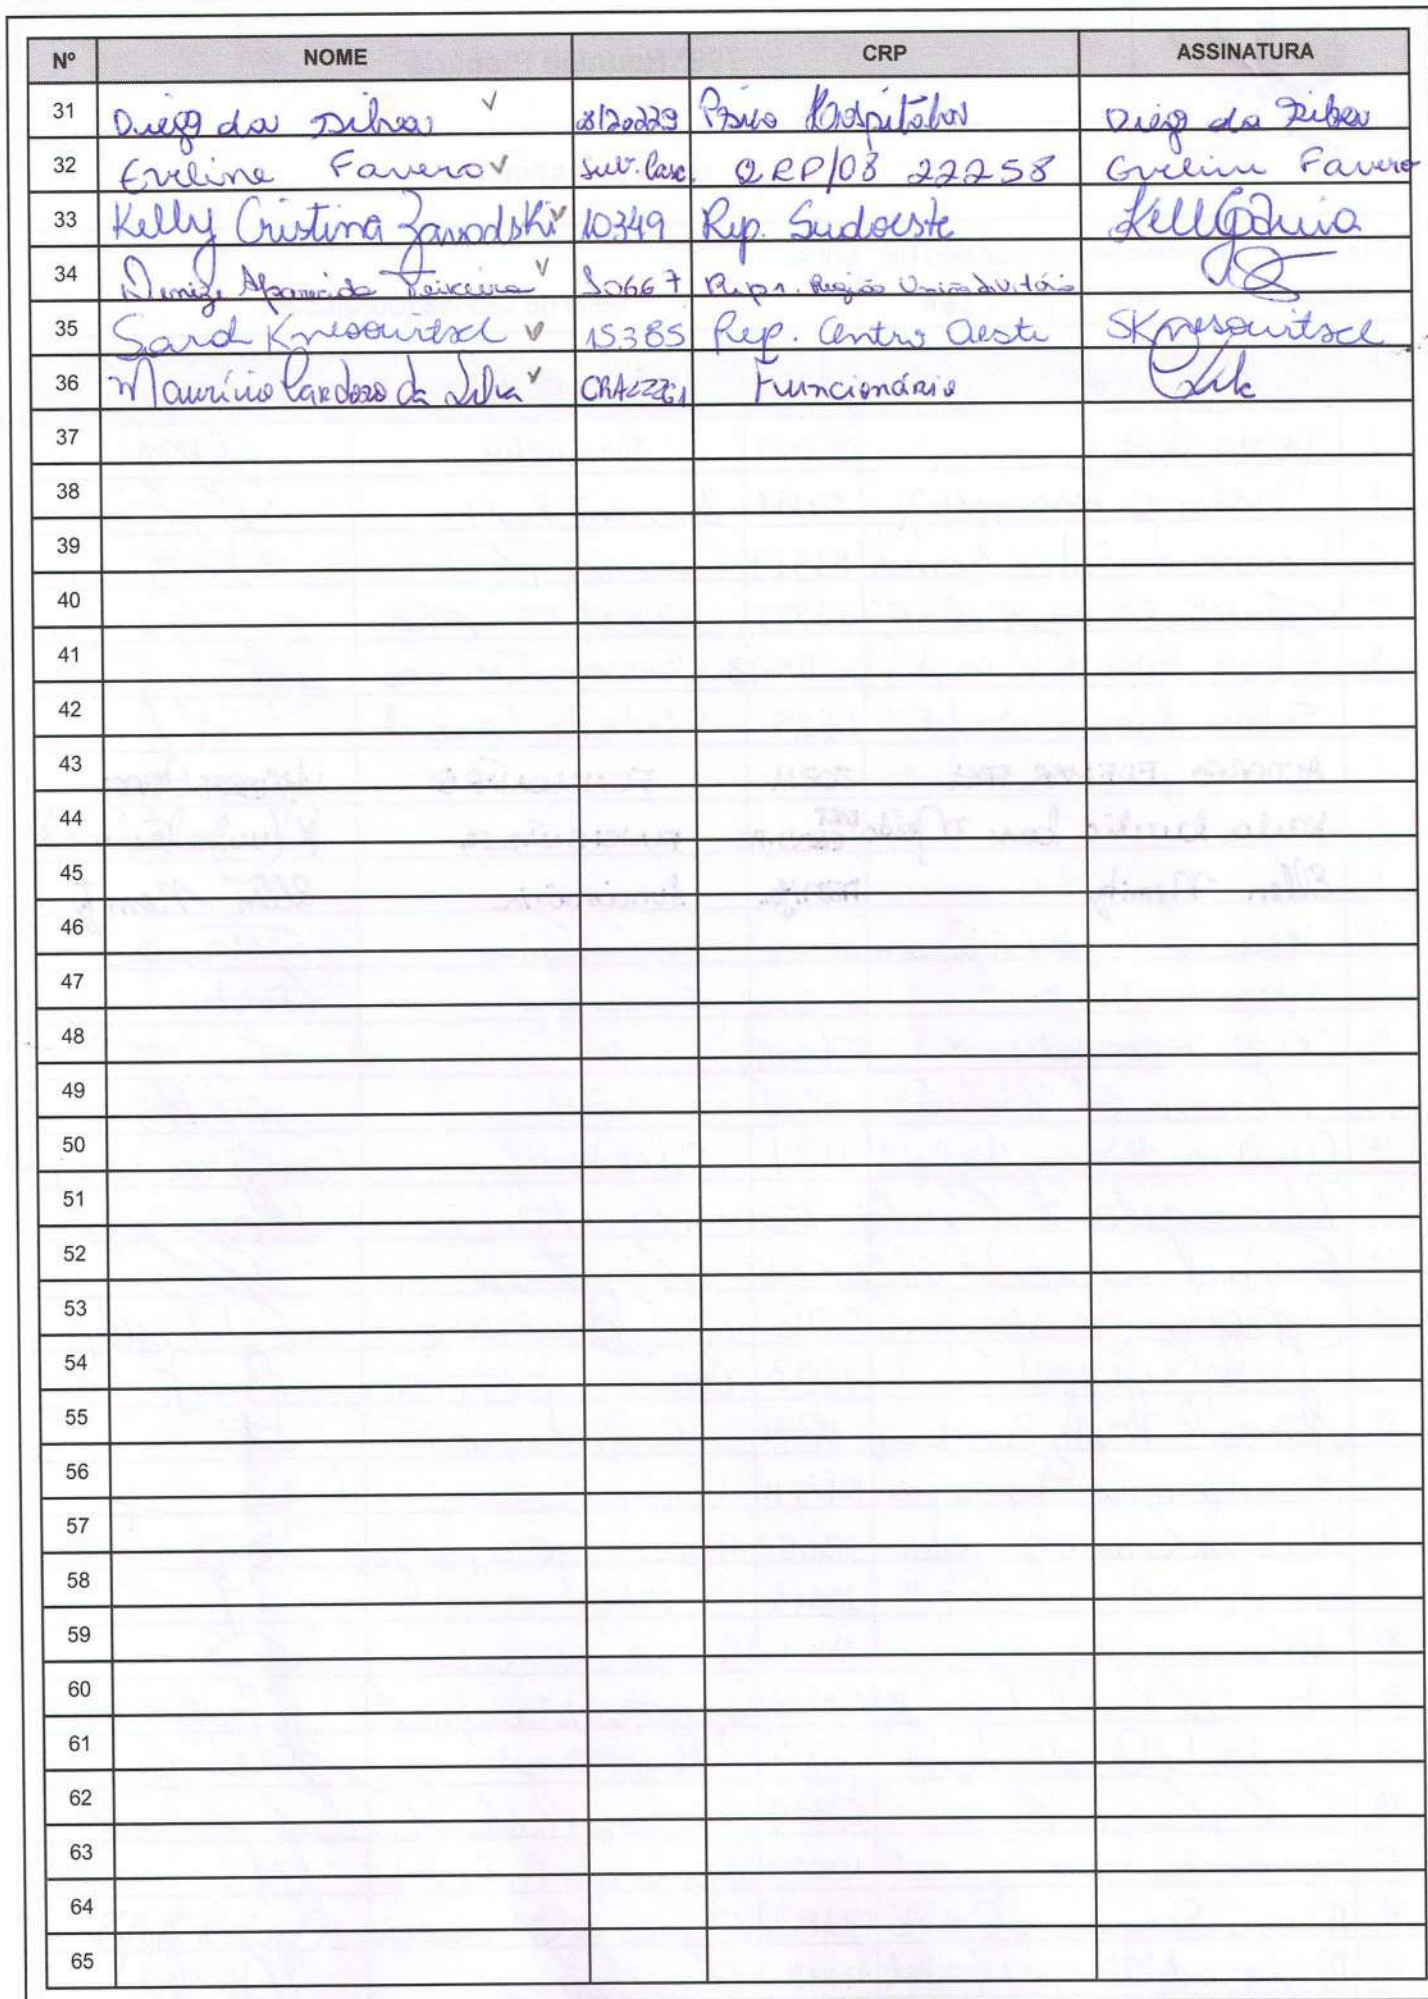 Nº NOME CRP ASSINATURA
31 Diego da Silva 8/20229 Psico Hospitalar Diego da Silva
32 Eveline Favero Sub. Casc. CRP/08 22258 Eveline Favero
33 Kelly Cristina Zawodski 10349 Rep. Sudoeste
34 Denize Aparecida Teixeira 20667 Repr. Região União da Vitória
35 Sarah 15385 Rep. Centro Oeste
36 Maurício Cardozo da Silva Funcionário
37
38
39
40
41
42
43
44
45
46
47
48
49
50
51
52
53
54
55
56
57
58
59
60
61
62
63
64
65